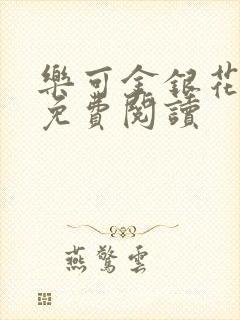 樂可金銀花
免費閱讀
燕驚雲